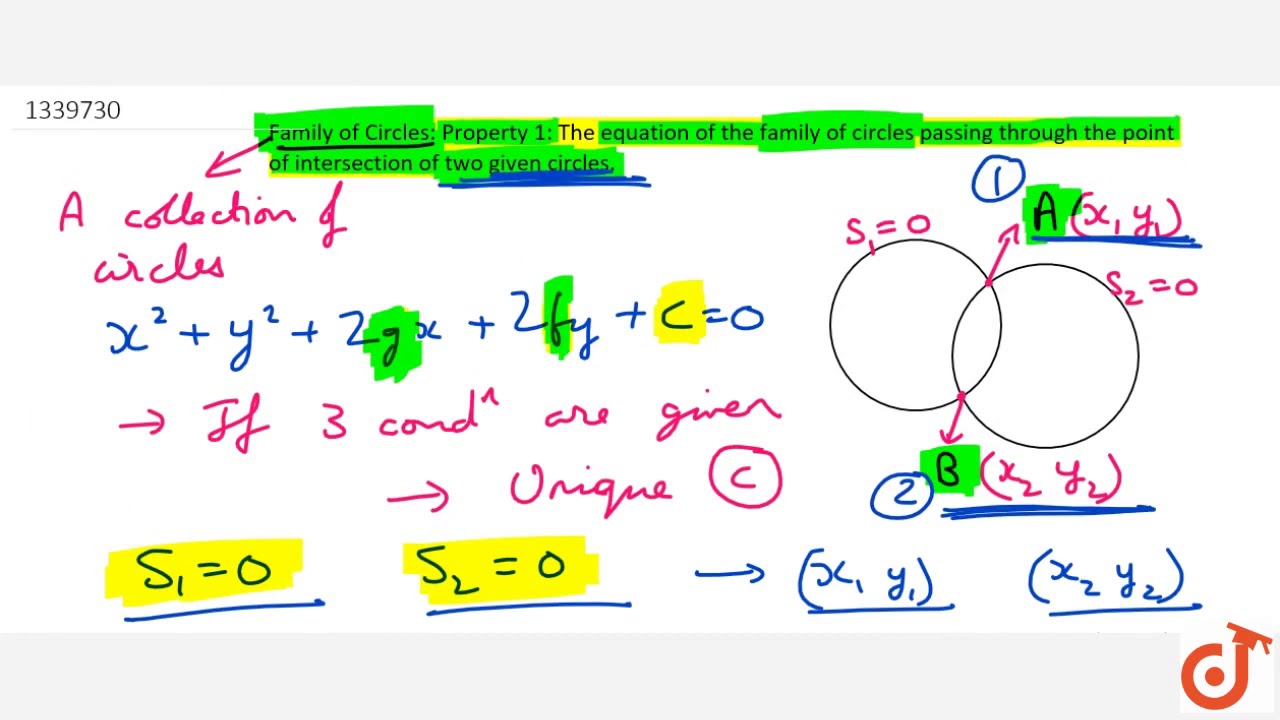 1339730
Family of Circles: Property 1: The equation of the family of circles passing through the point
of intersection of two given circles.
A collection of
circles
x² + y² + 2gx + 2fy + c = 0
→ If 3 condⁿ are given
→ Unique C
S₁ = 0 S₂ = 0 → (x₁ y₁) (x₂ y₂)
1
A (x₁ y₁)
S₁ = 0
S₂ = 0
B (x₂ y₂)
2